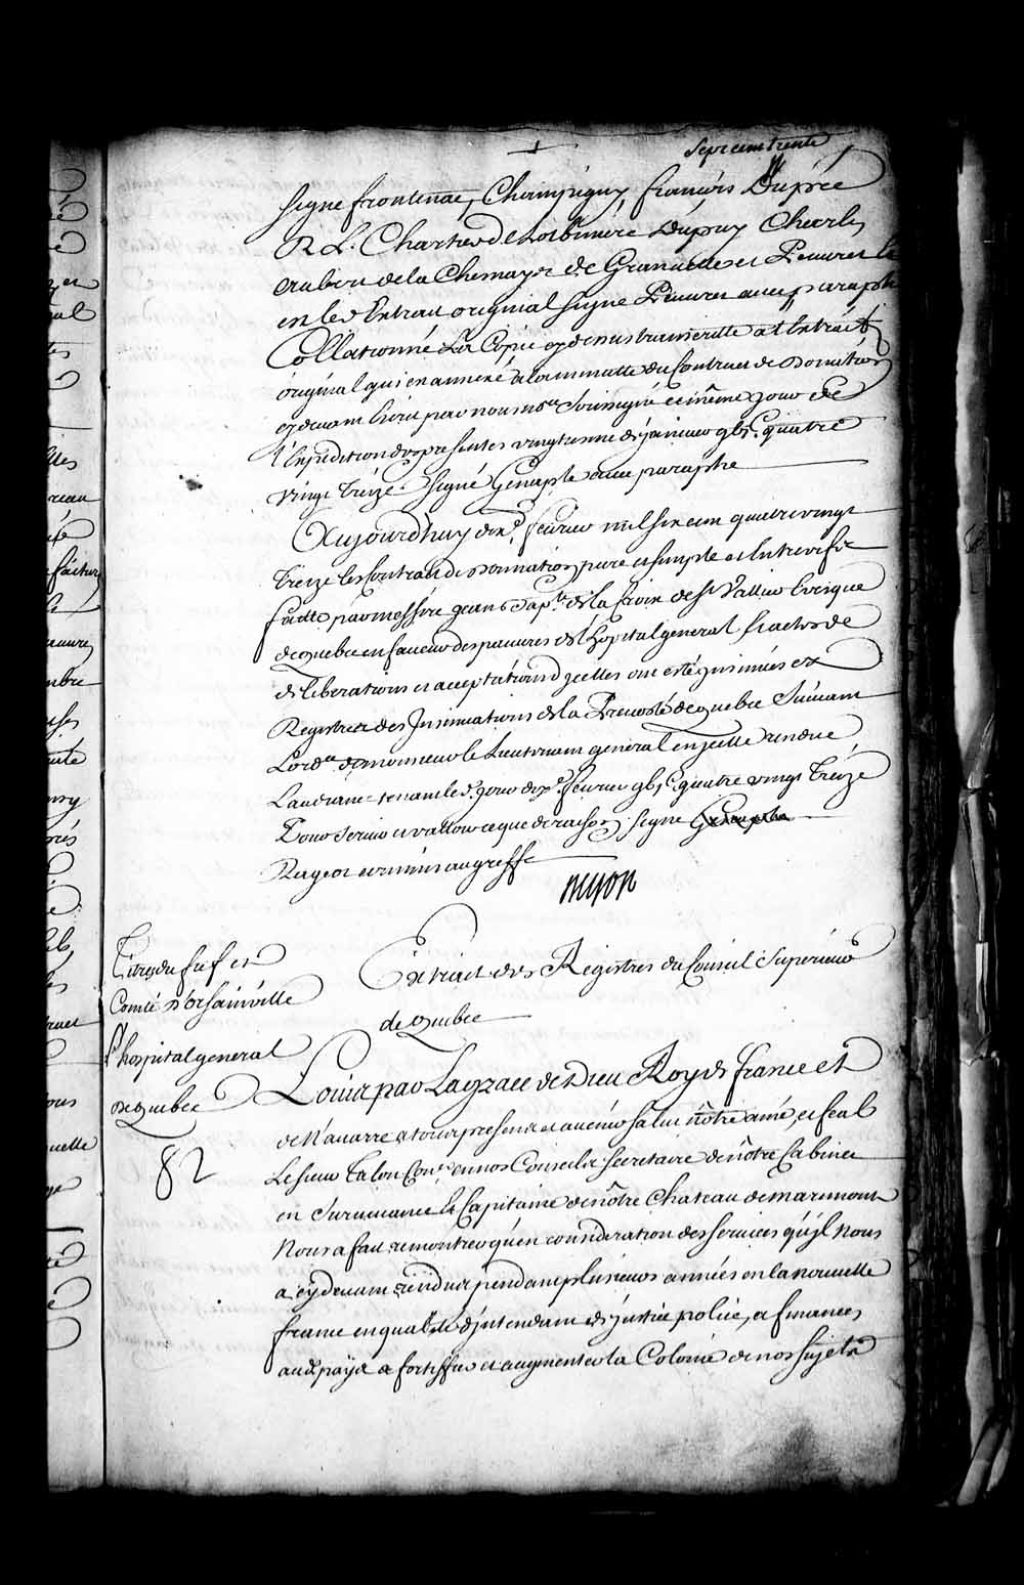 Sepcent trente
signe frontenac, Champigny, francois Duprée
R L. Chartier de Lotbiniere Dupuy Charles
Aubert de la Chenaye de Granville et Peuvret le
en les Extrait original signé Peuvret avec paraphe
Collationné La Copie cy dessus transcritte a l'Extrait
original qui en annexé a la minutte du Contract de Donation
cy devant Escrit par nous no.re Soussigné ce même jour de
l'Expedition des presentes vingtieme de janvier gbj.c quatre
vingt treize. signé Genaple avec paraphe
Aujourd'huy dix.e fevrier mil six cen quatre vingt
treize les Contrac de Donnation pure et simple et Entrevifs
faitte par messire jean Bap.te de la Croix de St Vallier Evesque
de quebec en faveur des pauvres de L'hopital general et actes de
deliberations et acceptations d'jcelles ont esté jnsinués ez
Registres des Jnsinuations de la Prevosté de quebec Suivant
Lord.ce de monsieur le Lieutenant general en jcelle rendue
Laudiance tenant le d. jour dix.e fevrier gbj.c quatre vingt treize
Pour servir et valloir ce que de raison. signé Genaple
Rageot commis au greffe
Titres du fief et
Comté D'orsainville
L'hospital general
de quebec
82
Extrait des Registres du Conseil Superieur
de quebec
Louis par La grace de Dieu Roy de france et
de Navarre a tous presens et avenir salut nôtre amé, et feal
Le sieur Talon Con.er en nos Conseils secretaire de nôtre Cabinet
en Survivance & Capitaine de nôtre Chateau de marimont
Nous a fait remontrer qu'en consideration des services qu'jl Nous
a cy devant rendus pendant plusieurs années en la nouvelle
france en qualité d'jntendant de justice police, et finances
audt. païs a fortiffier et augmenter la Colonie de nos sujets